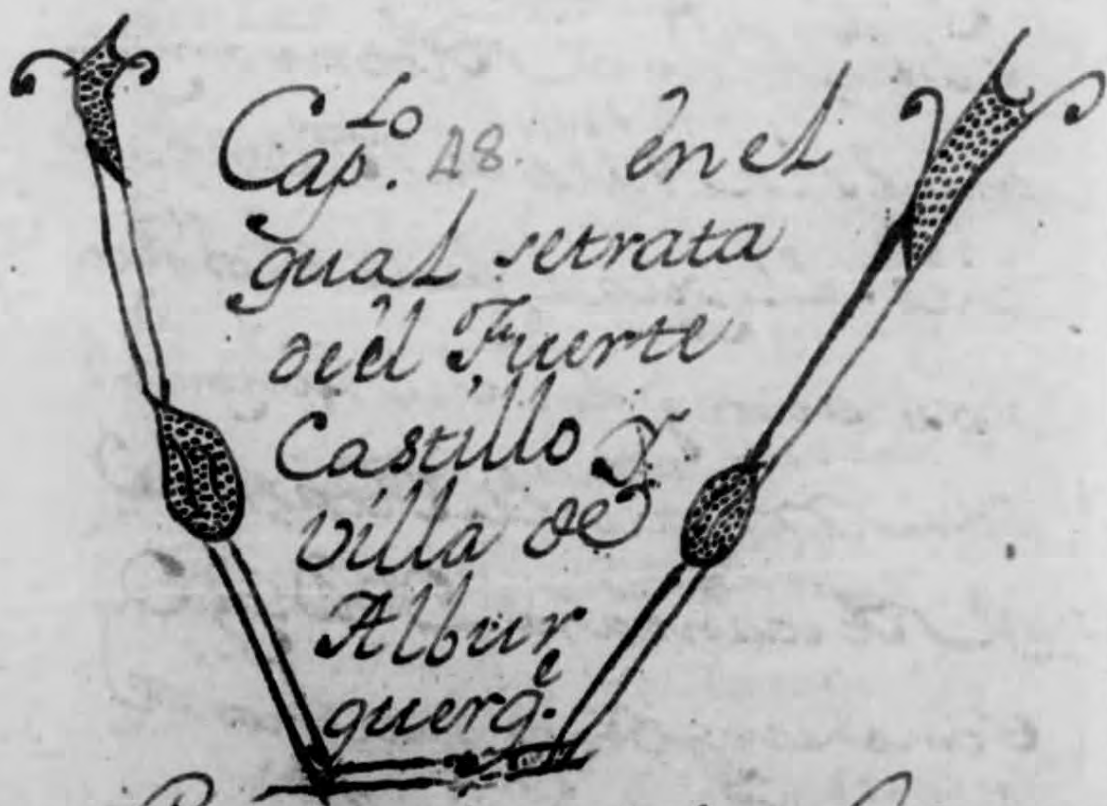 Cap.Lo 48. en el
qual setrata
deel Fuerte
Castillo Y
villa de
Albur
querq.e